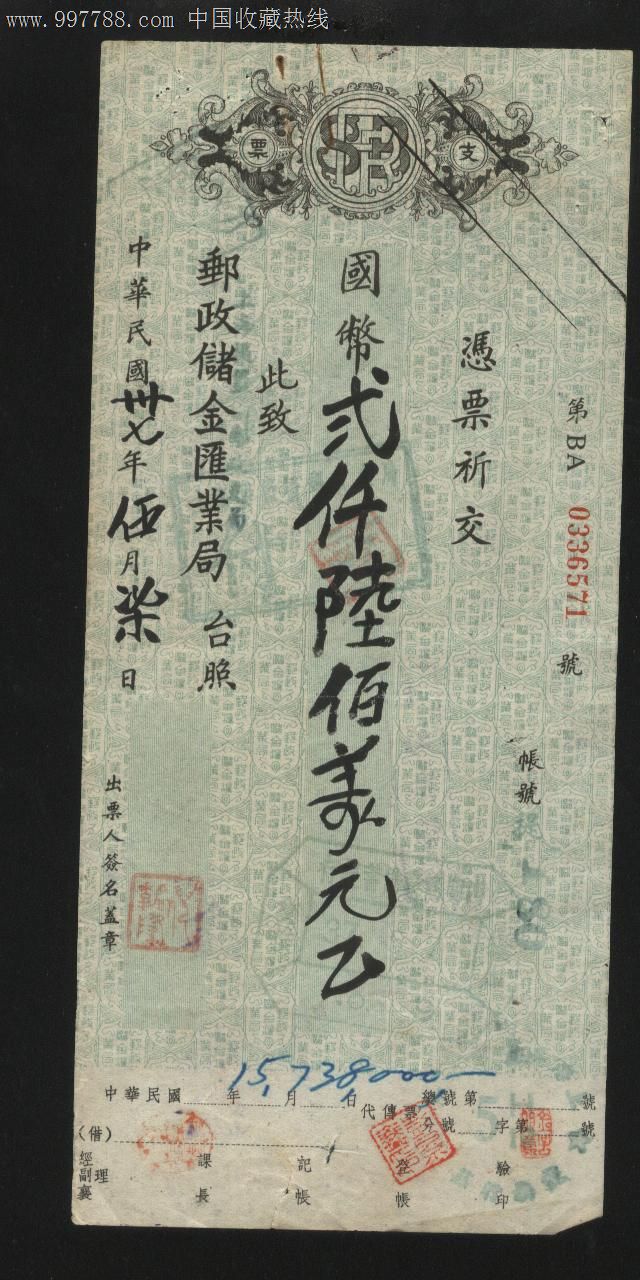 www.997788.com 中国收藏热线
支票
第BA 0336571 號
帳號
憑票祈交
國幣弍仟陸佰萬元正
此致
郵政儲金匯業局 台照
中華民國卅七年伍月柒日
出票人簽名蓋章
15,738,000.—
中華民國 年 月 日 總號第 號
代傳票 分號 字第 號
(借)
經副襄理 課長 記帳 登帳 驗印